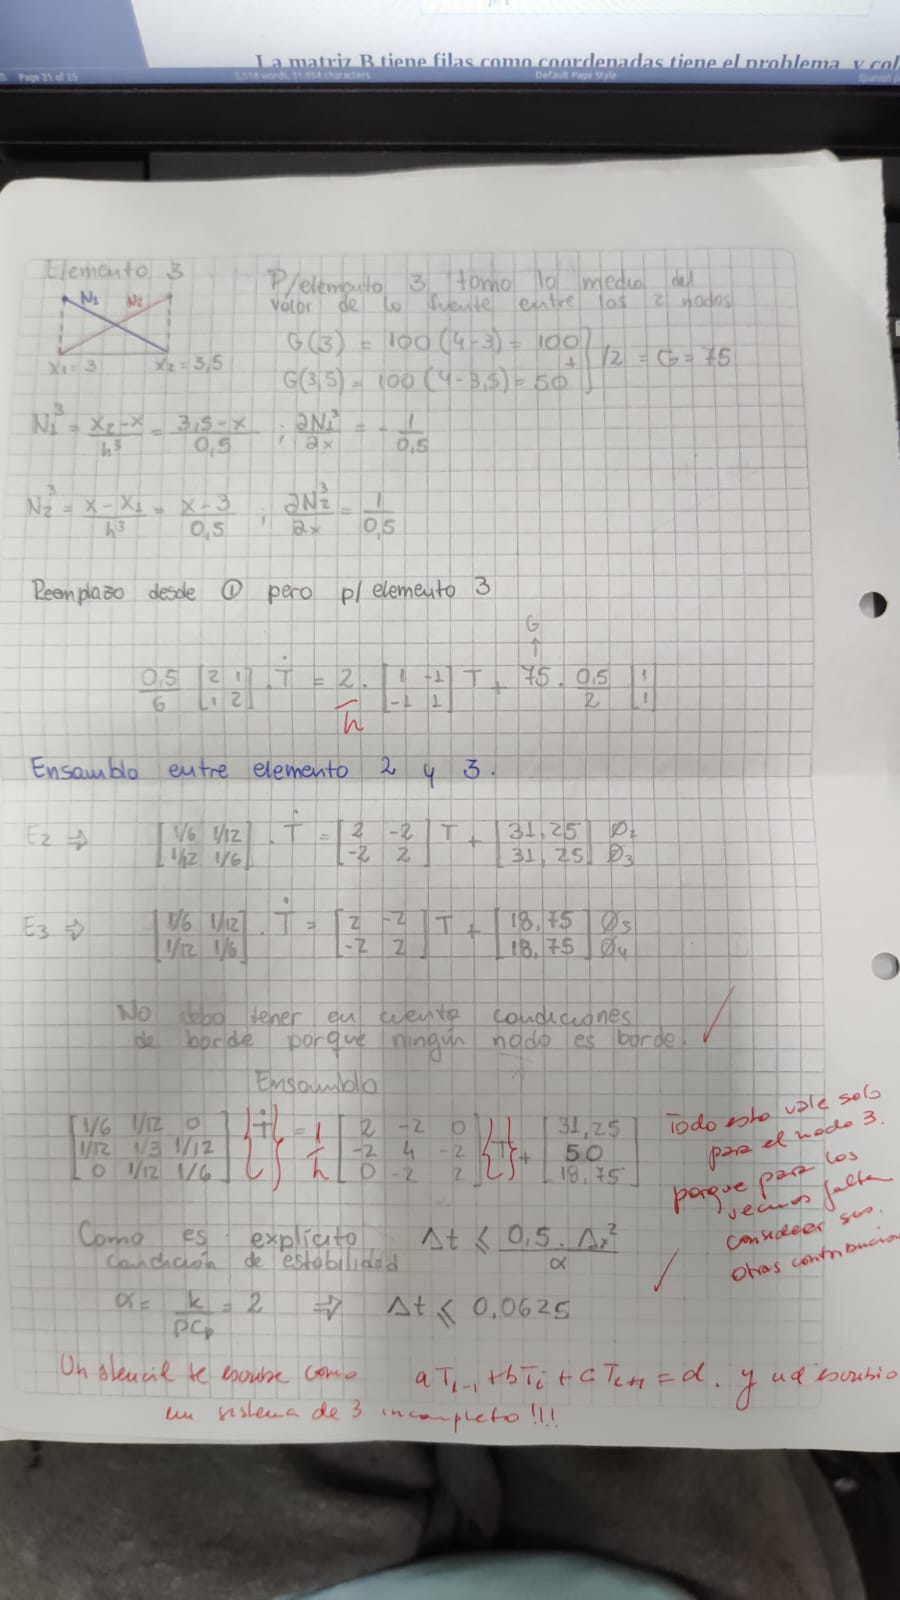 La matriz B tiene filas como coordenadas tiene el problema y col
Page 21 of 25 5,518 words, 31,054 characters Default Page Style Spanish
Elemento 3
P/elemento 3 tomo la media del
valor de la fuente entre los 2 nodos
N₁ N₂
x₁=3 x₂=3,5
G(3) = 100(4-3) = 100
+ ] /2 = G = 75
G(3,5) = 100(4-3,5) = 50
N₁³ = x₂-x/h³ = 3,5-x/0,5 ; ∂N₁³/∂x = -1/0,5
N₂³ = x-x₁/h³ = x-3/0,5 ; ∂N₂³/∂x = 1/0,5
Reemplazo desde ① pero p/ elemento 3
G
↑
0,5/6 [2 1; 1 2] . Ṫ = 2/h . [1 -1; -1 1] T + 75 . 0,5/2 [1; 1]
Ensamblo entre elemento 2 y 3.
E2 ⇒ [1/6 1/12; 1/12 1/6] . Ṫ = [2 -2; -2 2] T + [31,25; 31,25] Ø₂ Ø₃
E3 ⇒ [1/6 1/12; 1/12 1/6] . Ṫ = [2 -2; -2 2] T + [18,75; 18,75] Ø₃ Ø₄
No debo tener en cuenta condiciones
de borde porque ningún nodo es borde. ✓
Ensamblo
[1/6 1/12 0; 1/12 1/3 1/12; 0 1/12 1/6] {Ṫ} = 1/h [2 -2 0; -2 4 -2; 0 -2 2] {T} + [31,25; 50; 18,75]
Todo esto vale solo
para el nodo 3.
porque para los
vecinos falta
considerar sus
otras contribucio
Como es explícito
condición de estabilidad
Δt ≤ 0.5 . Δx²/α ✓
α = k/ρCp = 2 ⇒ Δt ≤ 0.0625
Un stencil se escribe como aTᵢ₋₁ + bTᵢ + cTᵢ₊₁ = d. y ud escribio
un sistema de 3 incompleto!!!